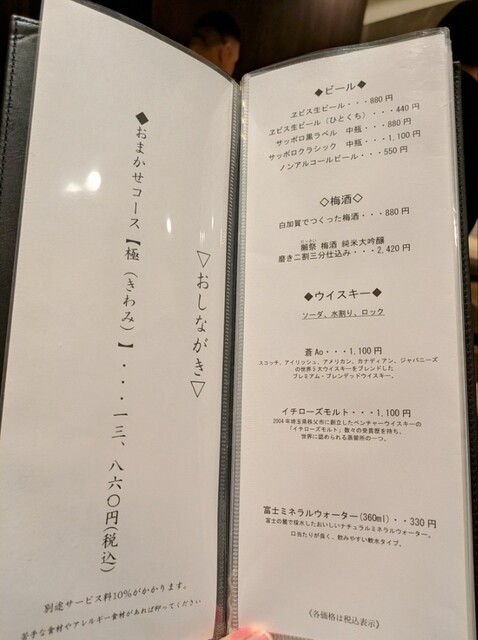 ▽おしながき▽
◆おまかせコース【極（きわみ）】・・・一三、八六〇円(税込)
別途サービス料10%がかかります。
苦手な食材やアレルギー食材があれば仰ってください
◆ビール◆
ヱビス生ビール・・・880円
ヱビス生ビール（ひとくち）・・・440円
サッポロ黒ラベル　中瓶・・・880円
サッポロクラシック　中瓶・・・1,100円
ノンアルコールビール・・・550円
◇梅酒◇
白加賀でつくった梅酒・・・880円
獺祭 梅酒 純米大吟醸
磨き二割三分仕込み・・・2,420円
◆ウイスキー◆
ソーダ、水割り、ロック
蒼 Ao・・・1,100円
スコッチ、アイリッシュ、アメリカン、カナディアン、ジャパニーズ
の世界5大ウイスキーをブレンドした
プレミアム・ブレンデッドウイスキー。
イチローズモルト・・・1,100円
2004年埼玉県秩父市に創立したベンチャーウイスキーの
「イチローズモルト」数々の受賞歴を持ち、
世界に認められる蒸留所の一つ。
富士ミネラルウォーター(360ml)・・330円
富士の麓で採水したおいしいナチュラルミネラルウォーター。
口当たりが良く、飲みやすい軟水タイプ。
《各価格は税込表示》